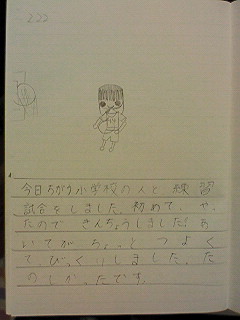 222
今日ちがう小学校の人と練習
試合をしました。初めて、や、
たのできんちょうしました。あ
いてがちょっとつよく
てびっくりしました。た
のしかったです。